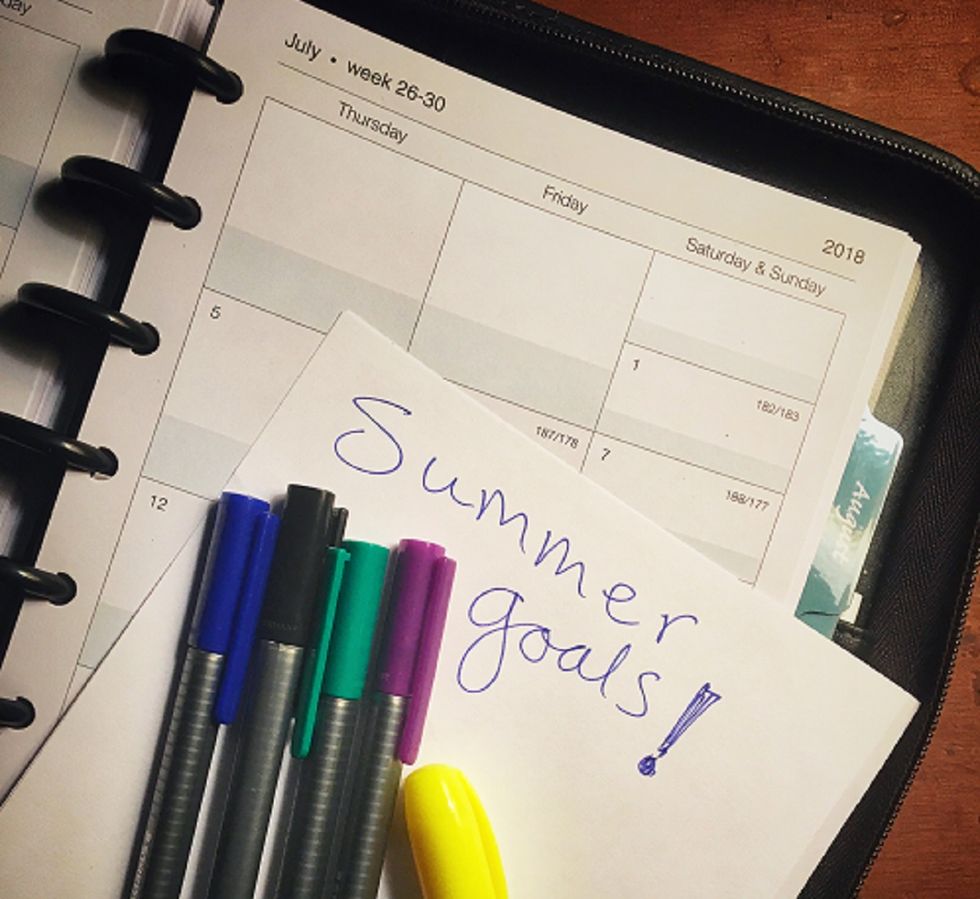 July • week 26-30
2018
Thursday
Friday
Saturday & Sunday
1
182/183
5
187/178
7
188/177
12
Summer
goals!
August